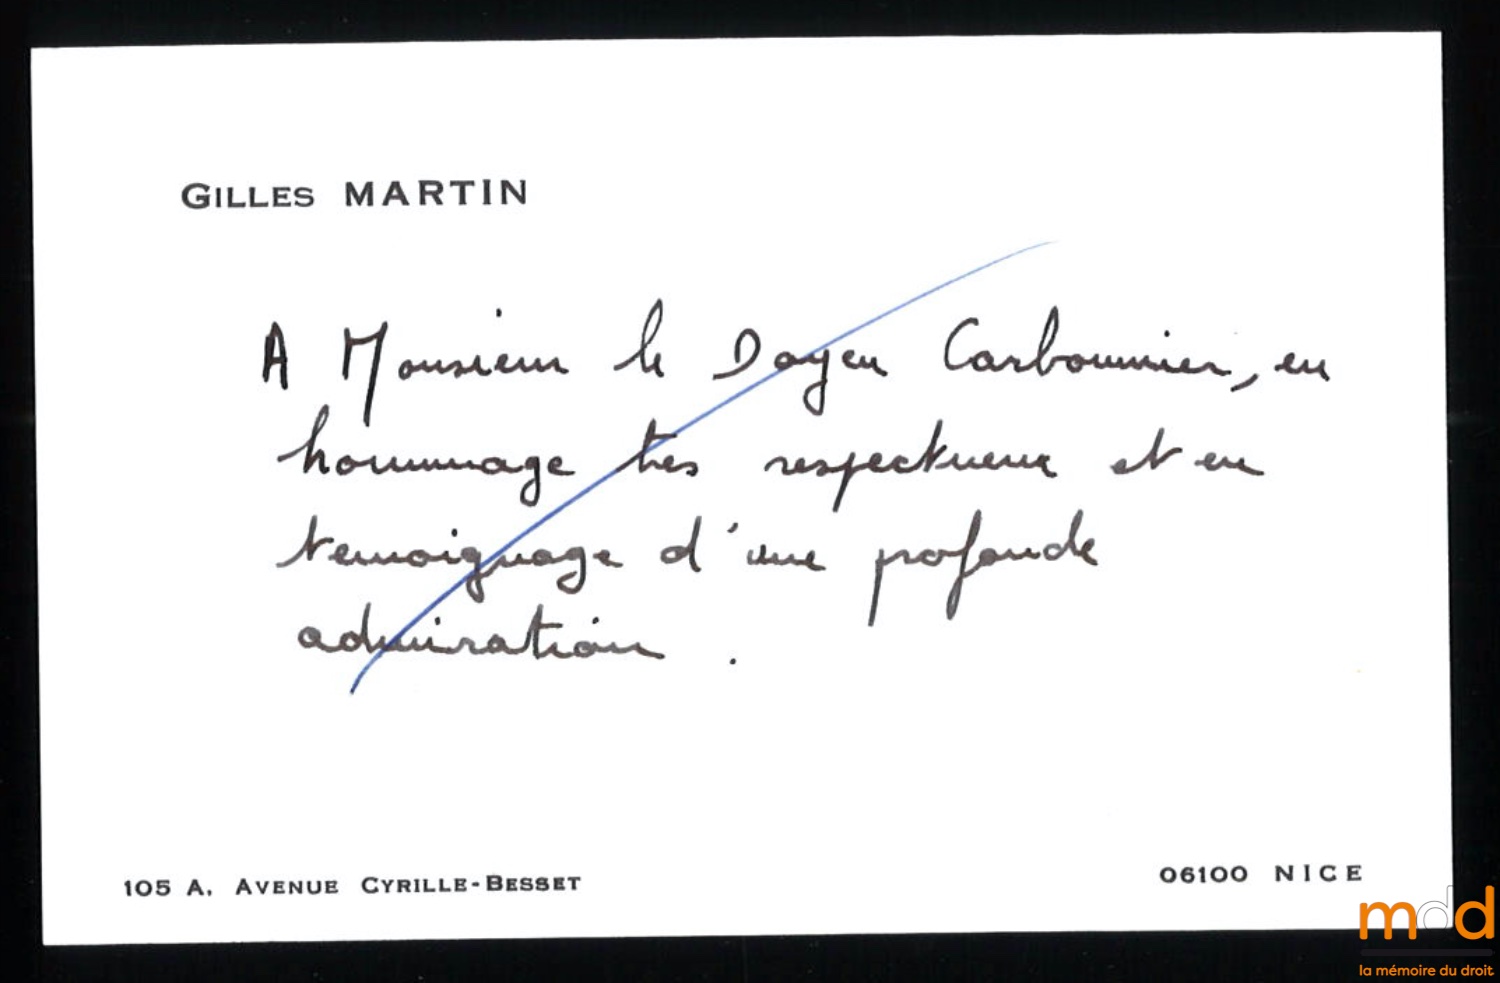 GILLES MARTIN
A Monsieur le Doyen Carbonnier, en
hommage très respectueux et en
temoignage d'une profonde
admiration.
105 A, AVENUE CYRILLE-BESSET
06100 NICE
mdd
la mémoire du droit